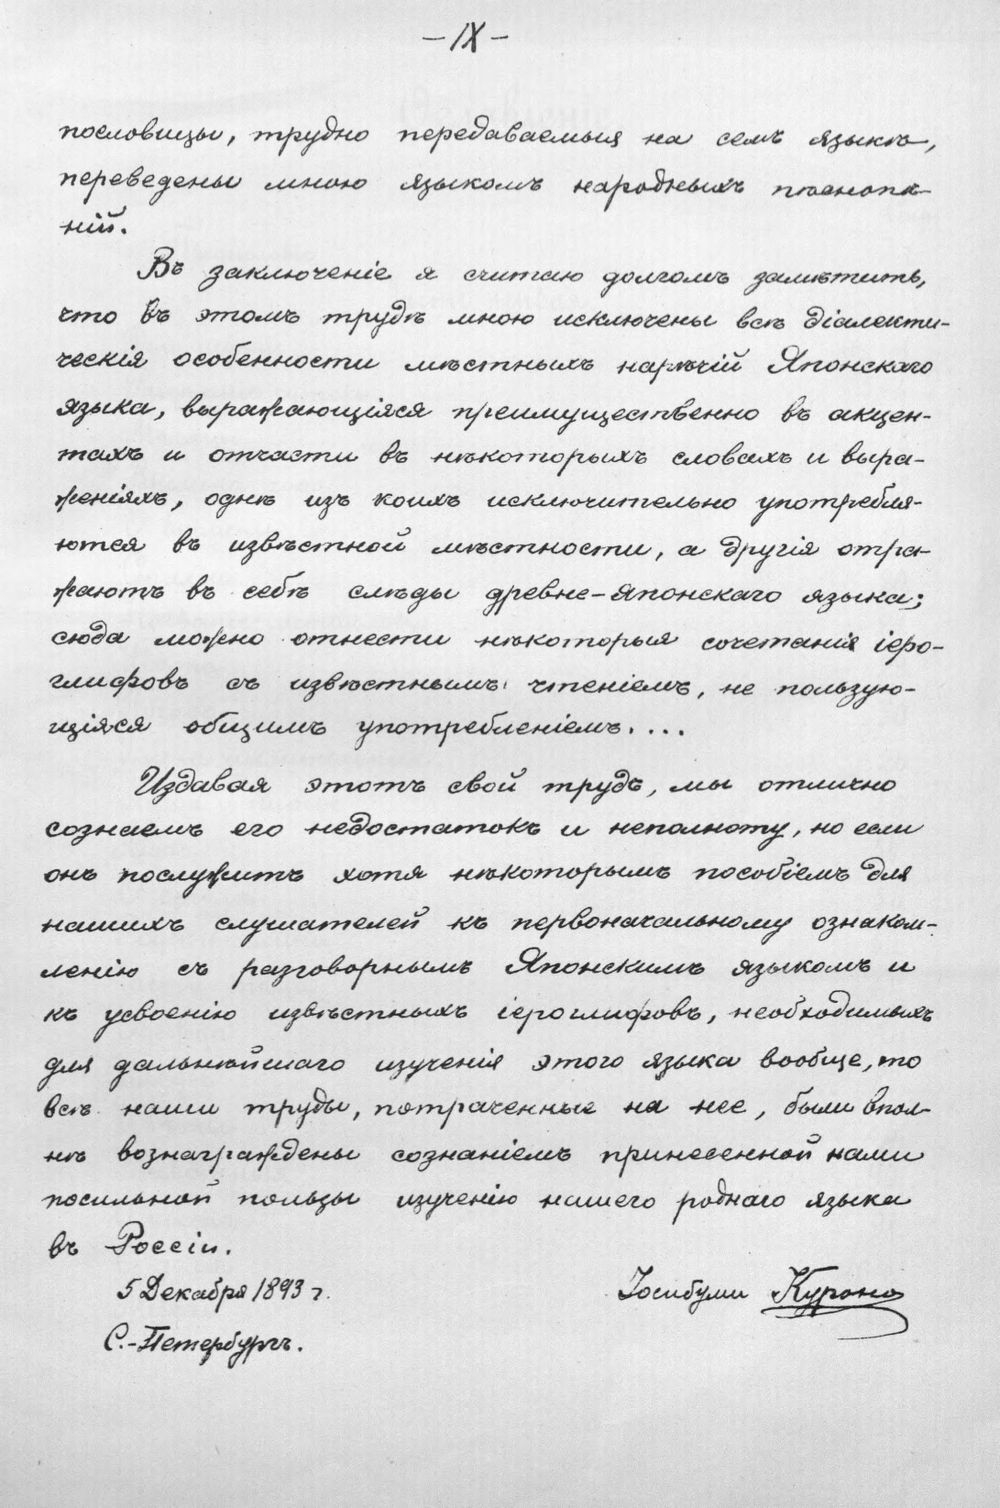 — IX —
пословицы, трудно передаваемыя на семъ языкѣ,
переведены мною языкомъ народныхъ пѣснопѣ-
ній.
Въ заключеніе я считаю долгомъ замѣтить,
что въ этомъ трудѣ мною исключены всѣ діалекти-
ческія особенности мѣстныхъ нарѣчій Японскаго
языка, выражающіяся преимущественно въ акцен-
тахъ и отчасти въ нѣкоторыхъ словахъ и выра-
женіяхъ, однѣ изъ коихъ исключительно употребля-
ются въ извѣстной мѣстности, а другія отра-
жаютъ въ себѣ слѣды древне-Японскаго языка;
сюда можно отнести нѣкоторыя сочетанія іеро-
глифовъ съ извѣстнымъ чтеніемъ, не пользую-
щіяся общимъ употребленіемъ....
Издавая этотъ свой трудъ, мы отлично
сознаемъ его недостатокъ и неполноту, но если
онъ послужитъ хотя нѣкоторымъ пособіемъ для
нашихъ слушателей къ первоначальному ознаком-
ленію съ разговорнымъ Японскимъ языкомъ и
къ усвоенію извѣстныхъ іероглифовъ, необходимыхъ
для дальнѣйшаго изученія этого языка вообще, то
всѣ наши труды, потраченные на нее, были впол-
нѣ вознаграждены сознаніемъ принесенной нами
посильной пользы изученію нашего роднаго языка
въ Россіи.
5 Декабря 1893 г. Іосибуми Куроно
С.-Петербургъ.